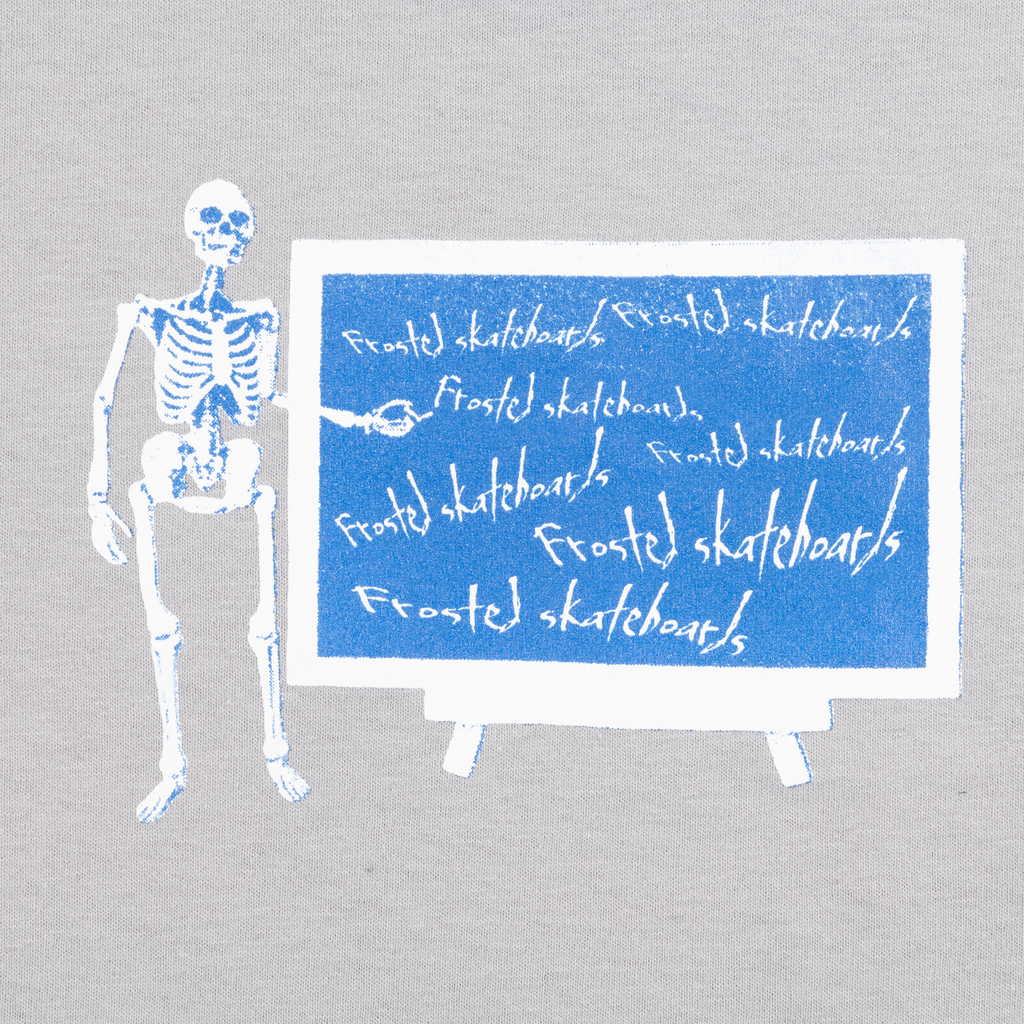 Frosted skateboards
Frosted skateboards
Frosted skateboards
Frosted skateboards
Frosted skateboards
Frosted skateboards
Frosted skateboards